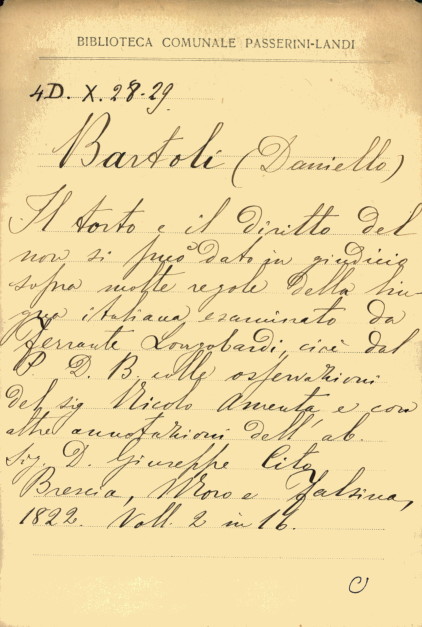 BIBLIOTECA COMUNALE PASSERINI-LANDI
4D. X. 28-29
Bartoli (Daniello)
Il torto e il diritto del
non si può dato in giudicio
sopra molte regole della lin-
gua italiana, esaminato da
Ferrante Longobardi, cioè dal
P. D. B. colle osservazioni
del sig Nicolo Amenta, e con
altre annotazioni dell'ab.
sig. D. Giuseppe Cito
Brescia, Moro e Falsina,
1822. Voll. 2 in 16.